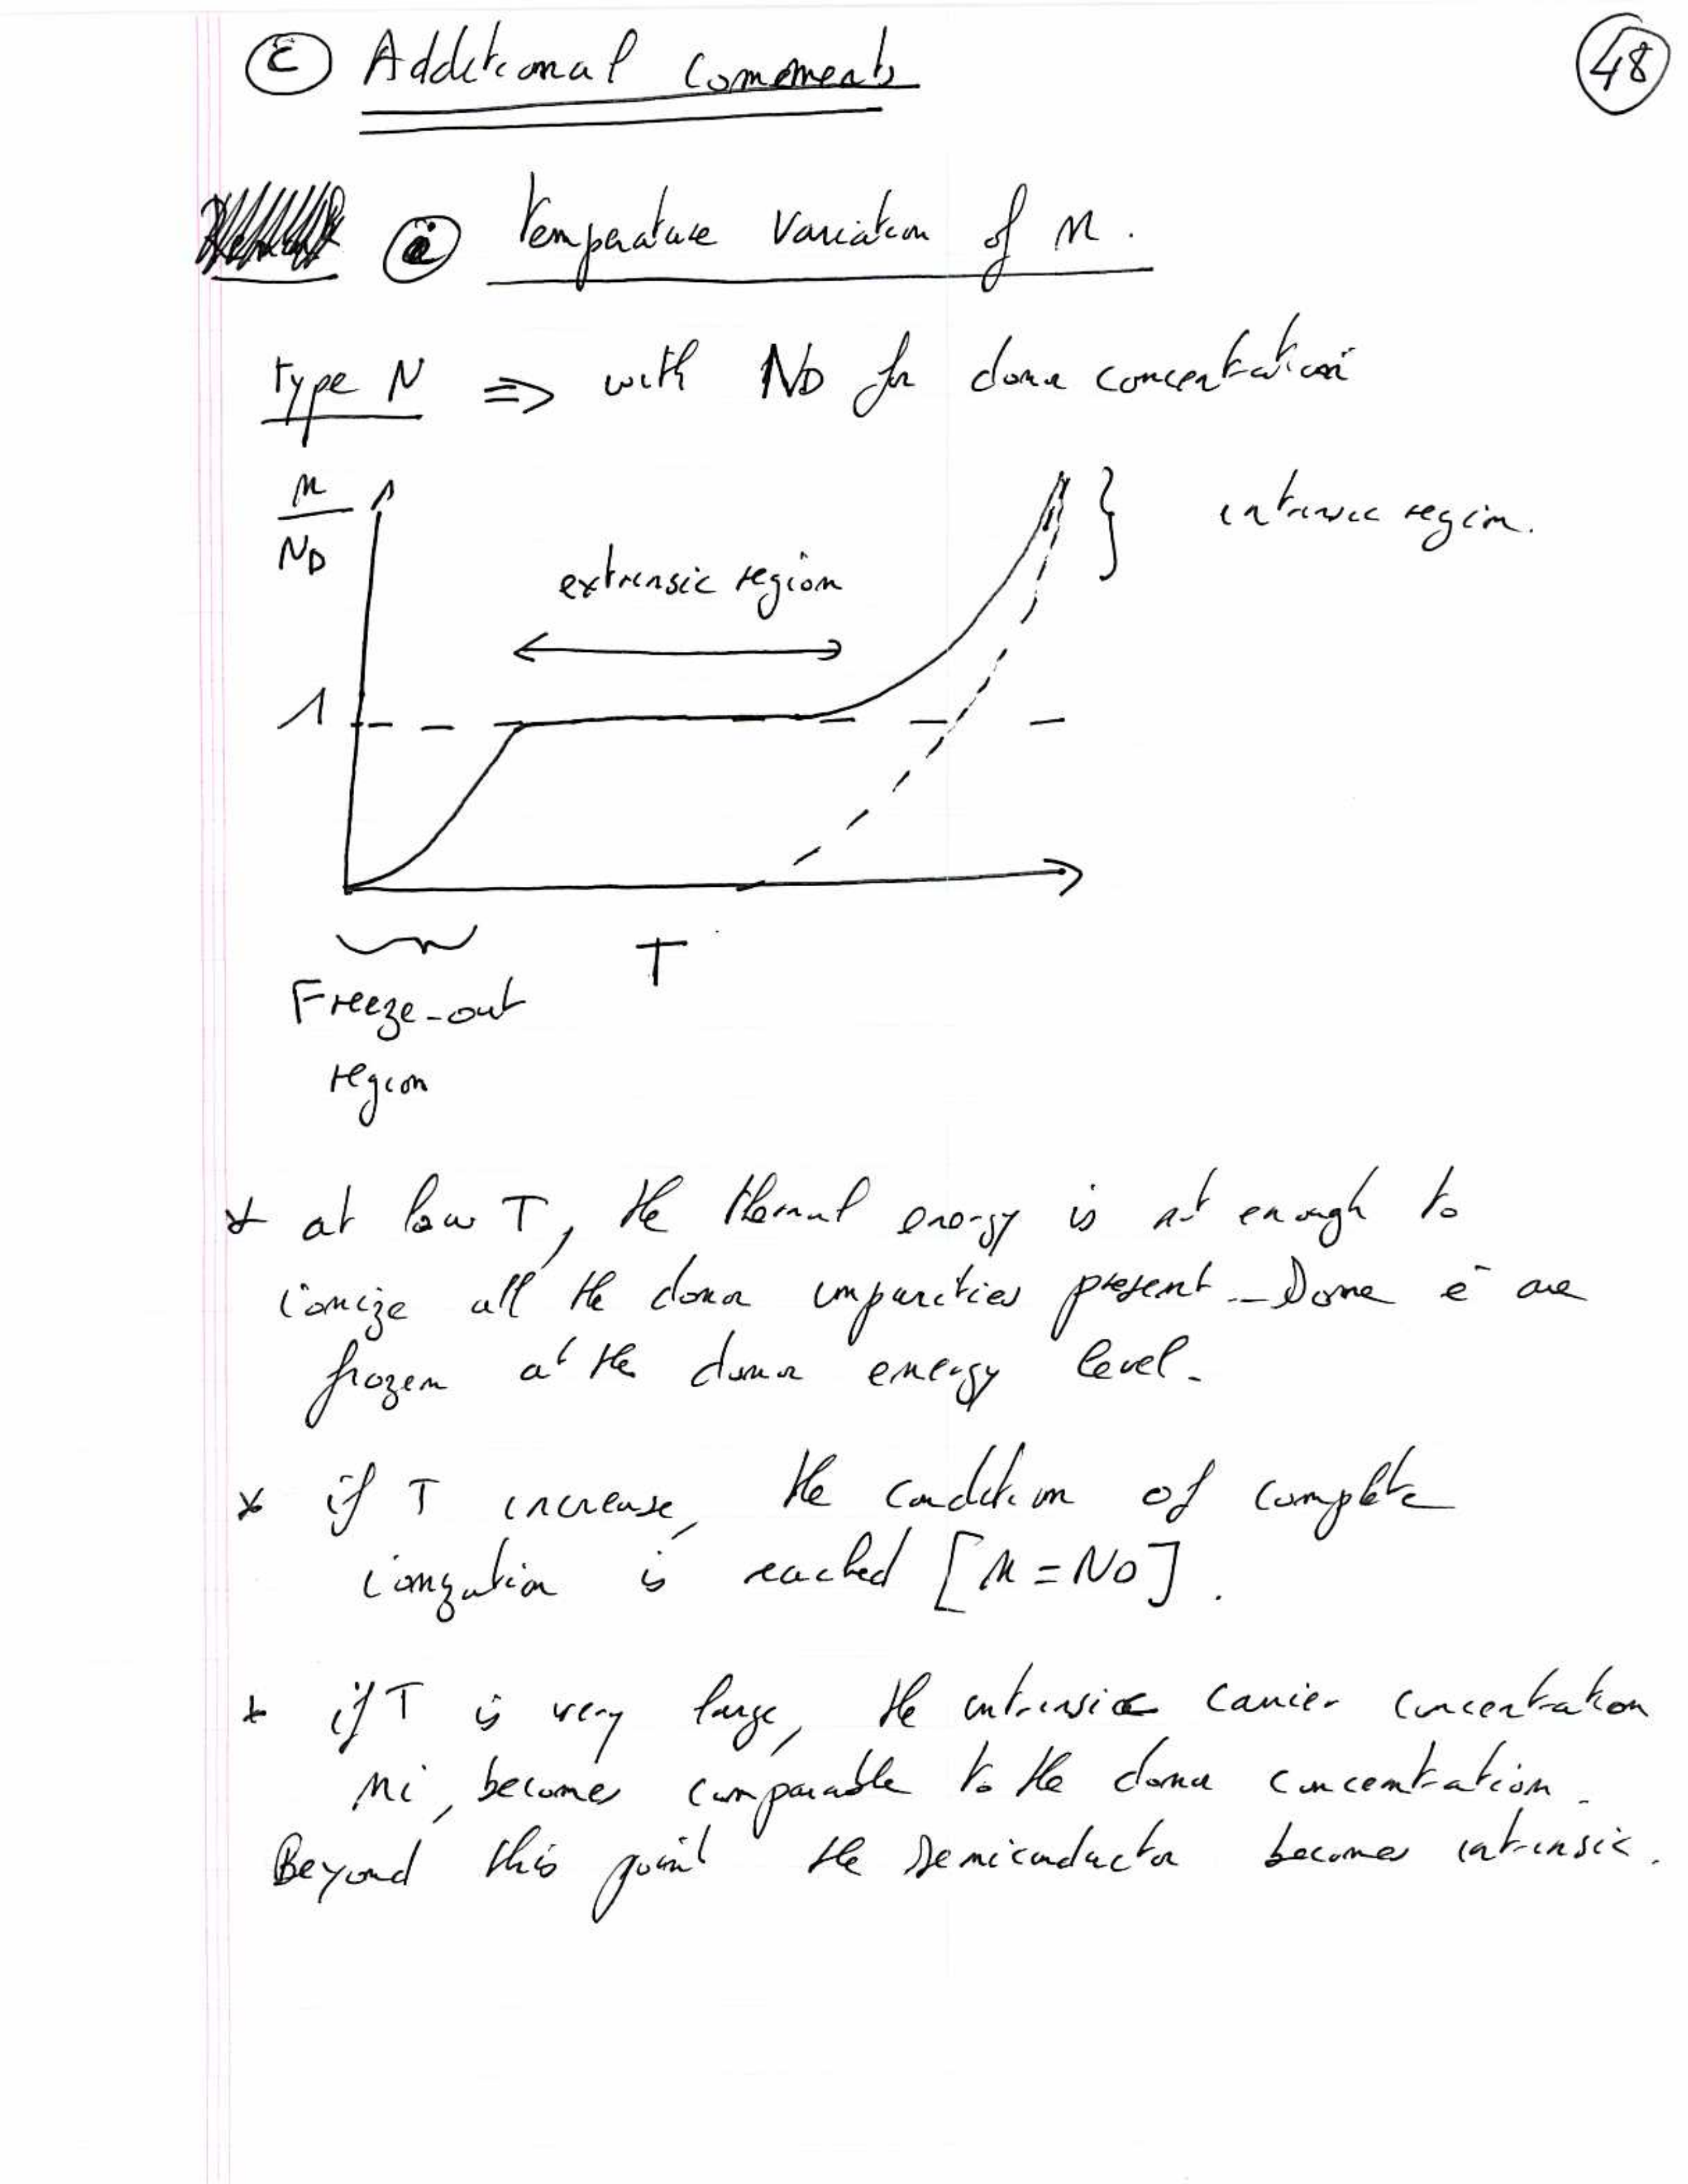 C Additional Comments
48
a Temperature Variation of n.
type N => with ND for donor concentration
n
ND
intrinsic region.
extrinsic region
1
T
Freeze-out
region
* at low T, the thermal energy is not enough to
ionize all the donor impurities present. Some e- are
frozen at the donor energy level.
* if T increase, the condition of complete
ionization is reached [n = ND].
* if T is very large, the intrinsic carrier concentration
ni, becomes comparable to the donor concentration.
Beyond this point the semiconductor becomes intrinsic.